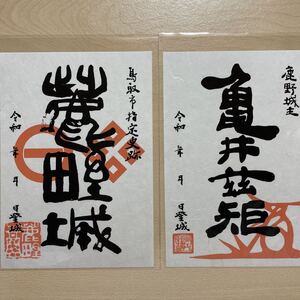 鹿野城主
亀井茲矩
令和 年 月 日登城
鳥取市指定史跡
鹿野城
令和 年 月 日登城